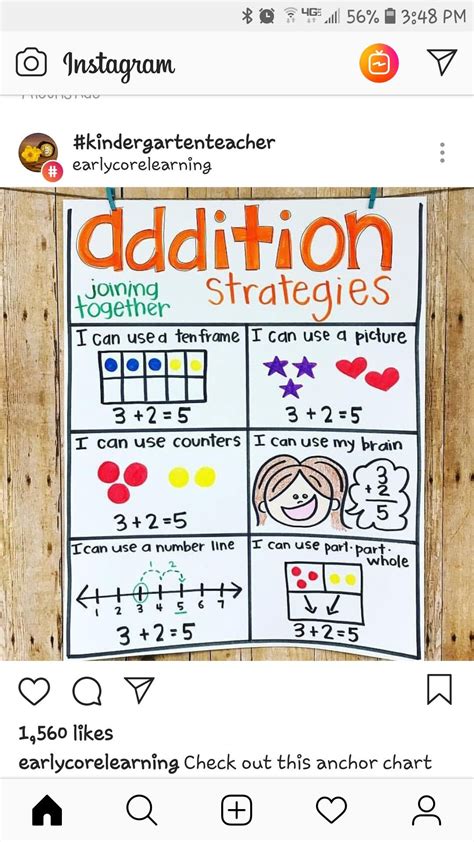 4GE 56% 3:48 PM
Instagram
#kindergartenteacher
earlycorelearning
addition
joining together
strategies
I can use a ten frame
3+2=5
I can use a picture
3+2=5
I can use counters
3+2=5
I can use my brain
3
+2
5
I can use a number line
1 2
1 2 3 4 5 6 7
3+2=5
I can use part-part-
whole
3+2=5
1,560 likes
earlycorelearning Check out this anchor chart